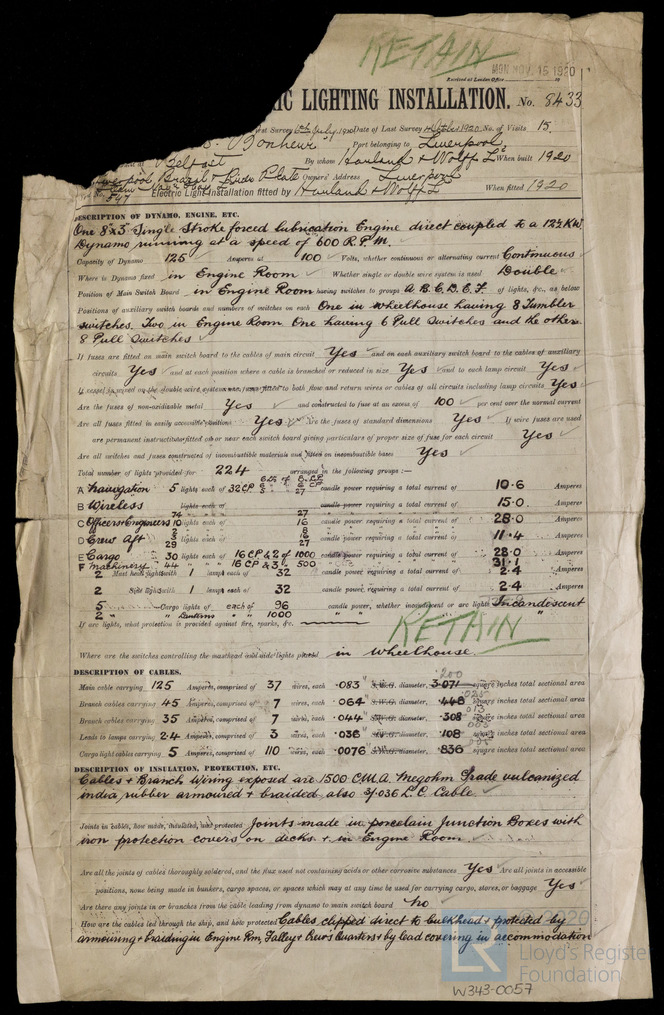 RETAIN
MON NOV. 15 1920
Received at London Office
IC LIGHTING INSTALLATION. No. 8433
First Survey 6th July 1920 Date of Last Survey October 1920 No. of Visits 15.
Bonheur" Port belonging to Liverpool
Belfast By whom Harland & Wolff Ld When built 1920
Liverpool Brazil & River Plate Owners' Address Liverpool
Yard No. 547 Electric Light Installation fitted by Harland & Wolff Ld When fitted 1920
DESCRIPTION OF DYNAMO, ENGINE, ETC.
One 8"x5" Single Stroke forced lubrication Engine direct coupled to a 12½ KW
Dynamo running at a speed of 600 R.P.M.
Capacity of Dynamo 125 Amperes at 100 Volts, whether continuous or alternating current Continuous
Where is Dynamo fixed in Engine Room Whether single or double wire system is used Double
Position of Main Switch Board in Engine Room having switches to groups A B C D E F of lights, &c., as below
Positions of auxiliary switch boards and numbers of switches on each One in Wheelhouse having 8 Tumbler
switches. Two in Engine Room One having 6 Pull Switches and the other
8 Pull Switches
If fuses are fitted on main switch board to the cables of main circuit Yes and on each auxiliary switch board to the cables of auxiliary
circuits Yes and at each position where a cable is branched or reduced in size Yes and to each lamp circuit Yes
If vessel is wired on the double wire system are fuses fitted to both flow and return wires or cables of all circuits including lamp circuits Yes
Are the fuses of non-oxidizable metal Yes and constructed to fuse at an excess of 100 per cent over the normal current
Are all fuses fitted in easily accessible positions Yes Are the fuses of standard dimensions Yes If wire fuses are used
are permanent instructions fitted on or near each switch board giving particulars of proper size of fuse for each circuit Yes
Are all switches and fuses constructed of incombustible materials and fitted on incombustible bases Yes
Total number of lights provided for 224 arranged in the following groups :—
A Navigation 5 lights each of 32 CP candle power requiring a total current of 10.6 Amperes
B Wireless lights each of candle power requiring a total current of 15.0 Amperes
C Officers & Engineers 74 10 lights each of 27 16 candle power requiring a total current of 28.0 Amperes
D Crew Aft 29 lights each of 27 candle power requiring a total current of 11.4 Amperes
E Cargo 30 lights each of 16 CP & 2 of 1000 candle power requiring a total current of 28.0 Amperes
F Machinery 44 " " " 16 CP & 3 of 500 31.1
2 Mast head light with 1 lamp each of 32 candle power requiring a total current of 2.4 Amperes
2 Side light with 1 lamp each of 32 candle power requiring a total current of 2.4 Amperes
5 Cargo lights each of 96 candle power, whether incandescent or arc lights Incandescent
2 " Lanterns " " 1000 " "
If arc lights, what protection is provided against fire, sparks, &c.
RETAIN
Where are the switches controlling the masthead and side lights placed in Wheelhouse.
DESCRIPTION OF CABLES.
Main cable carrying 125 Amperes, comprised of 37 wires, each .083" S.W.G. diameter, 3.071 .200 square inches total sectional area
Branch cables carrying 45 Amperes, comprised of 7 wires, each .064" S.W.G. diameter, .448 square inches total sectional area
Branch cables carrying 35 Amperes, comprised of 7 wires, each .044" S.W.G. diameter, .308 square inches total sectional area
Leads to lamps carrying 2.4 Amperes, comprised of 3 wires, each .036" S.W.G. diameter, .108 square inches total sectional area
Cargo light cables carrying 5 Amperes, comprised of 110 wires, each .0076" S.W.G. diameter, .836 square inches total sectional area
DESCRIPTION OF INSULATION, PROTECTION, ETC.
Cables & Branch Wiring exposed are 1500 C.M.A. Megohm Grade vulcanized
india rubber armoured & braided also 3/.036 L.C. Cable.
Joints in cables, how made, insulated, and protected Joints made in porcelain Junction Boxes with
iron protection covers on decks & in Engine Room.
Are all the joints of cables thoroughly soldered, and the flux used not containing acids or other corrosive substances Yes Are all joints in accessible
positions, none being made in bunkers, cargo spaces, or spaces which may at any time be used for carrying cargo, stores, or baggage Yes
Are there any joints in or branches from the cable leading from dynamo to main switch board No
How are the cables led through the ship, and how protected Cables clipped direct to bulkheads & protected by
armouring & braiding in Engine Rm, Galley & Crew's Quarters & by lead covering in accommodation
Lloyd's Register
Foundation
W343-0057